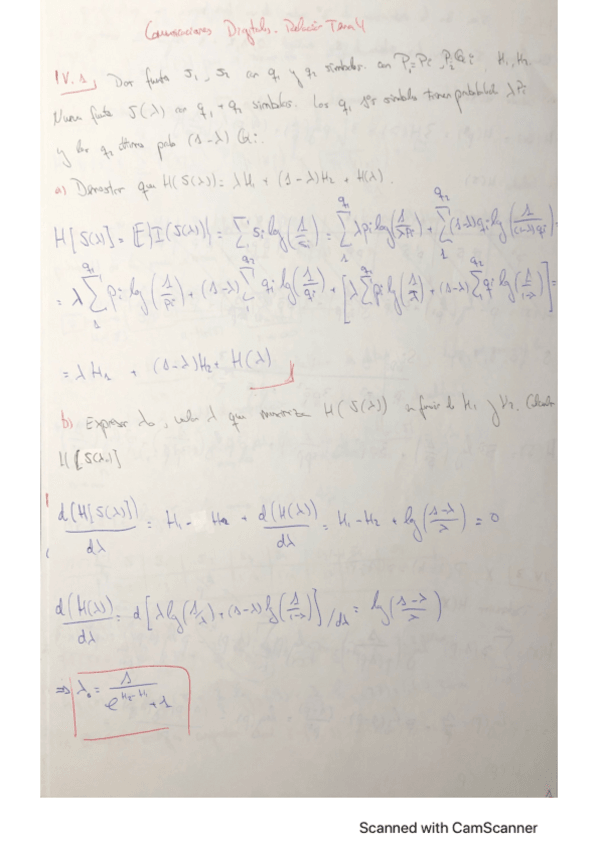 Comunicaciones Digitales. Relación Tema 4
IV.1, Dos fuentes S1, S2 con q1 y q2 símbolos. con P1=Pi, P2=Qi H1, H2
Nueva fuente S(λ) con q1 + q2 símbolos. Los q1 1os símbolos tienen probabilidad λPi
y los q2 últimos prob (1-λ) Qi.
a) Demostrar que H(S(λ)) = λH1 + (1-λ)H2 + H(λ).
H[S(λ)] = E{I(S(λ))} = Σ si log(1/si) = Σ λpi log(1/λpi) + Σ (1-λ)qi log(1/(1-λ)qi) =
= λ Σ pi log(1/pi) + (1-λ) Σ qi log(1/qi) + [λ Σ pi log(1/λ) + (1-λ) Σ qi log(1/1-λ)] =
= λH1 + (1-λ)H2 + H(λ)
b) Expresar λ0, valor λ que maximiza H(S(λ)) a función de H1 y H2. Calcular
H[S(λ)]
d(H[S(λ)])/dλ = H1 - H2 + d(H(λ))/dλ = H1 - H2 + log(1-λ/λ) = 0
d(H(λ))/dλ = d[λ log(1/λ) + (1-λ) log(1/1-λ)]/dλ = log(1-λ/λ)
⇒ λ0 = 1/e^(H2-H1) + 1
1
Scanned with CamScanner